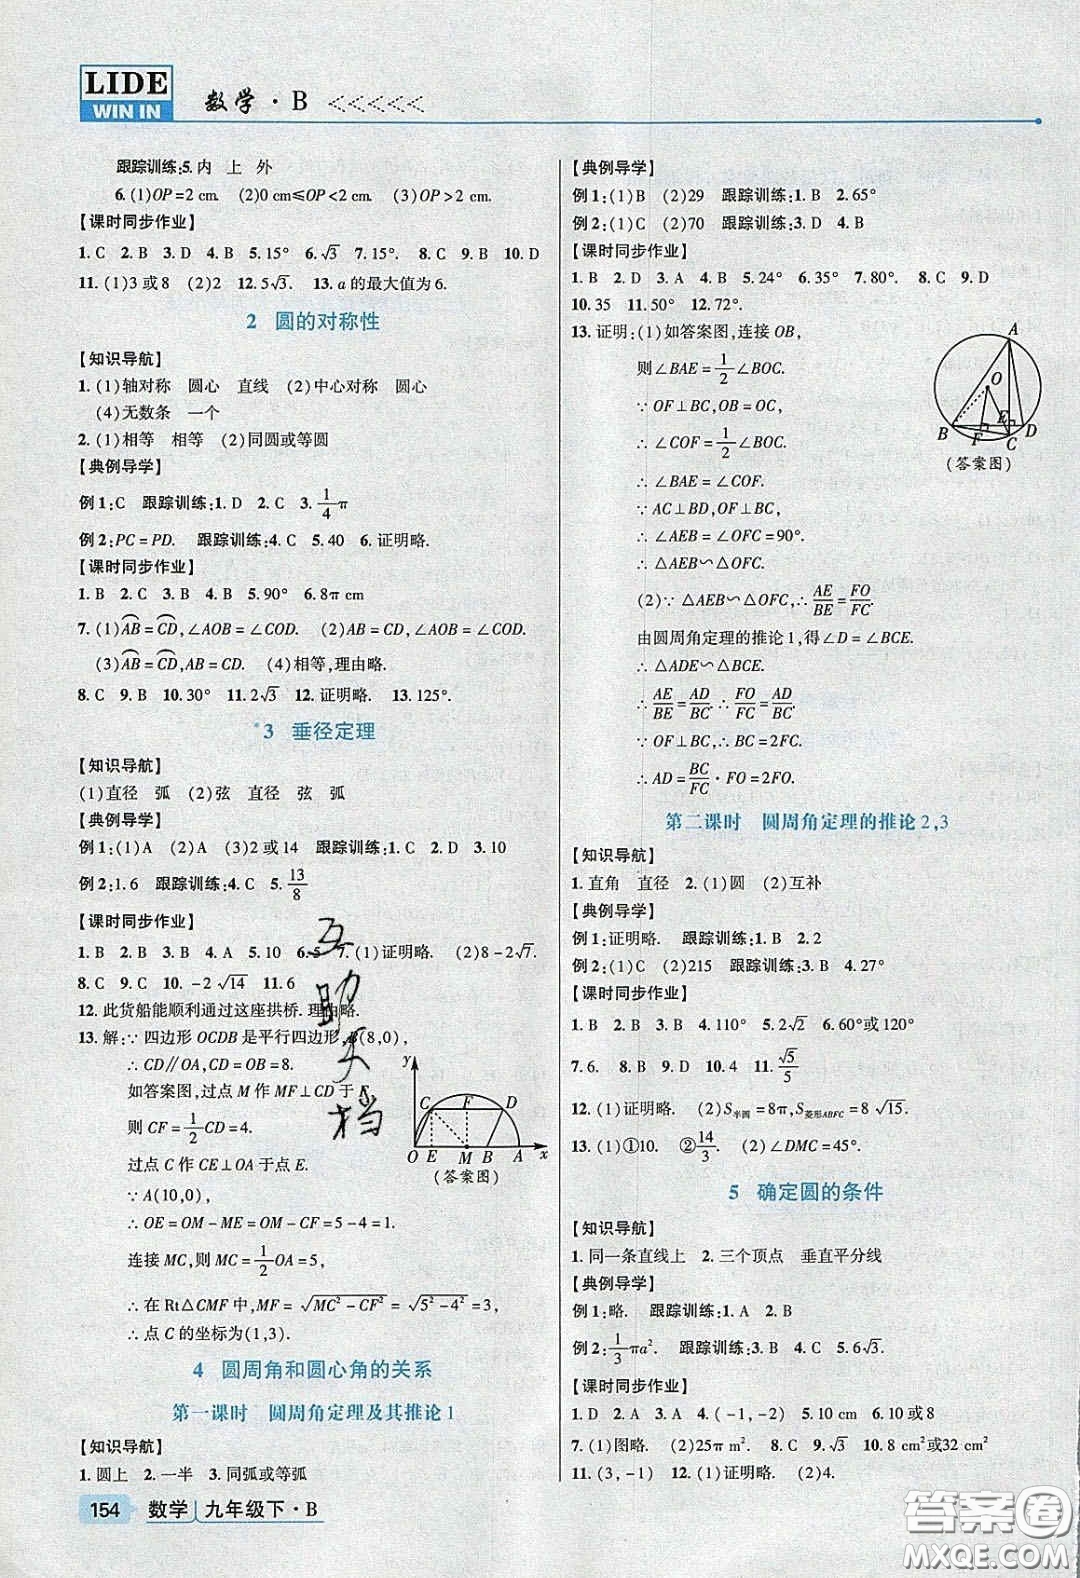 LIDE
WIN IN
数学·B
跟踪训练:5.内 上 外
6.(1)OP=2 cm. (2)0 cm≤OP<2 cm. (3)OP>2 cm.
【课时同步作业】
1.C 2.B 3.D 4.A 5.15° 6.√3 7.15° 8.C 9.B 10.D
11.(1)3或8 (2)2 12.5√3. 13.a的最大值为6.
2 圆的对称性
【知识导航】
1.(1)轴对称 圆心 直线 (2)中心对称 圆心
(4)无数条 一个
2.(1)相等 相等 (2)同圆或等圆
【典例导学】
例1:C 跟踪训练:1.D 2.C 3.1/4π
例2:PC=PD. 跟踪训练:4.C 5.40 6.证明略.
【课时同步作业】
1.B 2.C 3.B 4.B 5.90° 6.8π cm
7.(1)⌒AB=⌒CD,∠AOB=∠COD. (2)AB=CD,∠AOB=∠COD.
(3)⌒AB=⌒CD,AB=CD. (4)相等,理由略.
8.C 9.B 10.30° 11.2√3 12.证明略. 13.125°.
*3 垂径定理
【知识导航】
(1)直径 弧 (2)弦 直径 弦 弧
【典例导学】
例1:(1)A (2)2或14 跟踪训练:1.C 2.D 3.10
例2:1.6 跟踪训练:4.C 5.13/8
【课时同步作业】
1.B 2.B 3.B 4.A 5.10 6.5 7.(1)证明略. (2)8-2√7.
8.C 9.C 10.-2√14 11.6
12.此货船能顺利通过这座拱桥.理由略.
13.解:∵四边形OCDB是平行四边形,B(8,0),
∴CD∥OA,CD=OB=8.
如答案图,过点M作MF⊥CD于F,
则CF=1/2CD=4.
过点C作CE⊥OA于点E.
∵A(10,0),
∴OE=OM-ME=OM-CF=5-4=1.
连接MC,则MC=1/2OA=5,
∴在Rt△CMF中,MF=√(MC²-CF²)=√(5²-4²)=3,
∴点C的坐标为(1,3).
y
C F D
O E M B A x
(答案图)
互助文档
4 圆周角和圆心角的关系
第一课时 圆周角定理及其推论1
【知识导航】
1.圆上 2.一半 3.同弧或等弧
154 数学 九年级下·B
【典例导学】
例1:(1)B (2)29 跟踪训练:1.B 2.65°
例2:(1)C (2)70 跟踪训练:3.D 4.B
【课时同步作业】
1.B 2.D 3.A 4.B 5.24° 6.35° 7.80° 8.C 9.D
10.35 11.50° 12.72°.
13.证明:(1)如答案图,连接OB,
则∠BAE=1/2∠BOC.
∵OF⊥BC,OB=OC,
∴∠COF=1/2∠BOC.
∴∠BAE=∠COF.
∵AC⊥BD,OF⊥BC,
∴∠AEB=∠OFC=90°.
∴△AEB∽△OFC.
(2)∵△AEB∽△OFC,∴AE/BE=FO/FC.
由圆周角定理的推论1,得∠D=∠BCE.
∴△ADE∽△BCE.
∴AE/BE=AD/BC.∴FO/FC=AD/BC.
∵OF⊥BC,∴BC=2FC.
∴AD=BC/FC·FO=2FO.
A
O
B F E C D
(答案图)
第二课时 圆周角定理的推论2,3
【知识导航】
1.直角 直径 2.(1)圆 (2)互补
【典例导学】
例1:证明略. 跟踪训练:1.B 2.2
例2:(1)C (2)215 跟踪训练:3.B 4.27°
【课时同步作业】
1.B 2.B 3.B 4.110° 5.2√2 6.60°或120°
7.6. 8.B 9.D 10.4 11.√5/5
12.(1)证明略. (2)S半圆=8π,S菱形ABFC=8√15.
13.(1)①10. ②14/3. (2)∠DMC=45°.
5 确定圆的条件
【知识导航】
1.同一条直线上 2.三个顶点 垂直平分线
【典例导学】
例1:略. 跟踪训练:1.A 2.B
例2:1/3πa². 跟踪训练:3.B 4.C 5.6√3.
【课时同步作业】
1.D 2.A 3.D 4.(-1,-2) 5.10 cm 6.10或8
7.(1)图略. (2)25π m². 8.C 9.√3 10.8 cm²或32 cm²
11.(3,-1) 12.(1)证明略. (2)4.
答案圈
MXQE.COM